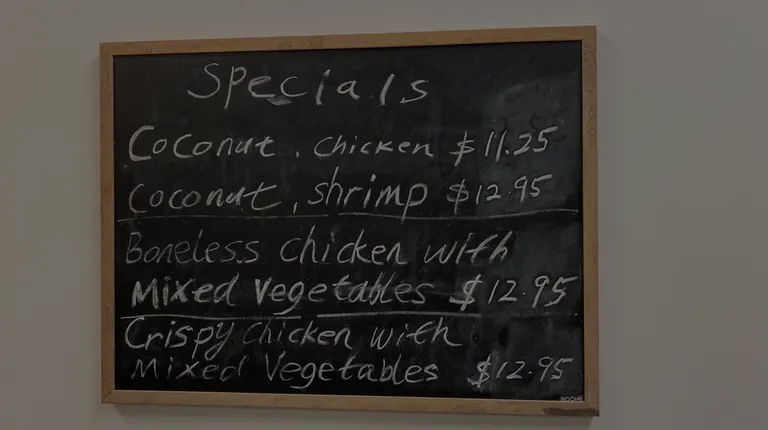 Specials
Coconut, chicken $11.25
Coconut, shrimp $12.95
Boneless chicken with
Mixed Vegetables $12.95
Crispy chicken with
Mixed Vegetables $12.95